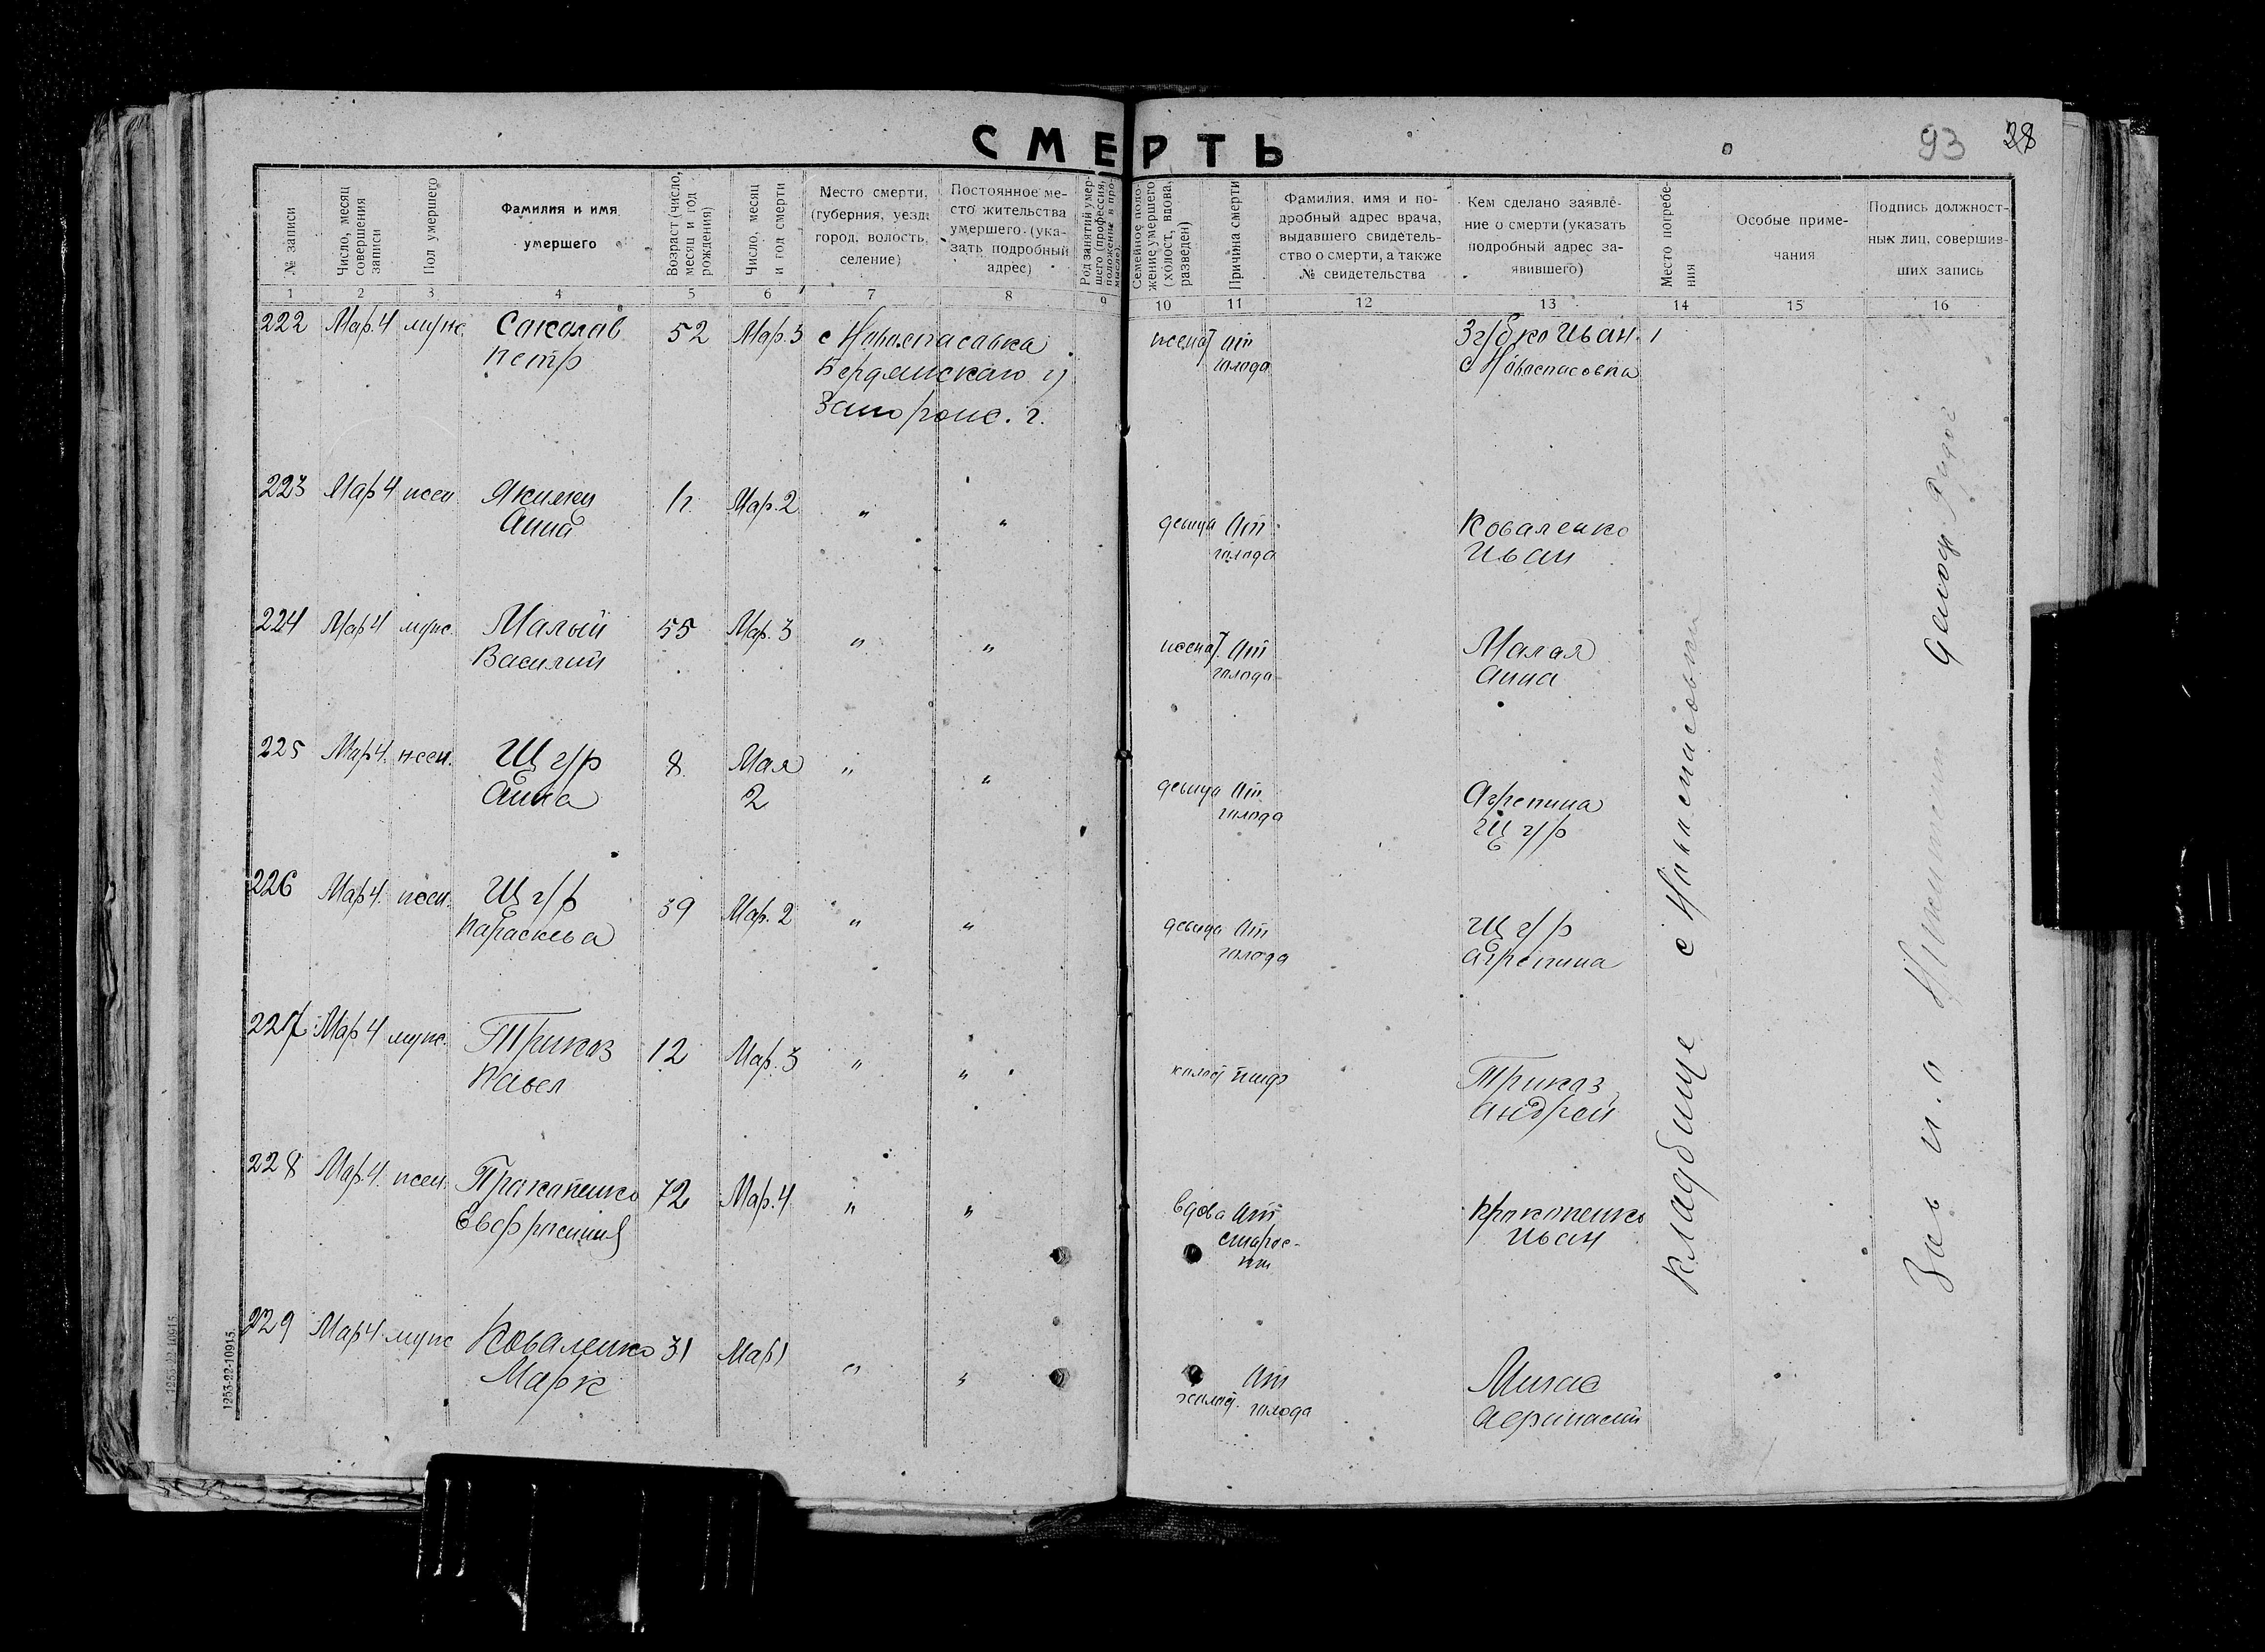 СМЕРТЬ
93 28
№ записи
Число, месяц совершения записи
Пол умершего
Фамилия и имя умершего
Возраст (число, месяц и год рождения)
Число, месяц и год смерти
Место смерти, (губерния, уезд, город, волость, селение)
Постоянное место жительства умершего (указать подробный адрес)
Род занятий умершего (профессия, положение в промысле)
Семейное положение умершего (холост, вдова, разведен)
Причина смерти
Фамилия, имя и подробный адрес врача, выдавшего свидетельство о смерти, а также № свидетельства
Кем сделано заявление о смерти (указать подробный адрес заявившего)
Место погребения
Особые примечания
Подпись должностных лиц, совершивших запись
1 2 3 4 5 6 7 8 9 10 11 12 13 14 15 16
222 Мар. 4 муж. Саколав 52 Мар. 3 с Новоспасавка женат Ат Згубко Иван.
Петр Бердянскаго у голода с Новаспасовка
Запорож. г.
223 Мар 4 жен Якимец 1 г. Мар. 2 " " девица Ат Коваленко
Анна голода Иван
224 Мар 4 муж. Малый 55 Мар. 3 " " женат Ат Малая
Василий голода Анна
225 Мар 4. жен. Щур 8 Мая " " девица Ат Агрепина
Анна 2 голода Щур
226 Мар 4. жен. Щур 39 Мар. 2 " " девица Ат Щур
Параскева голода Агрепина
227 Мар 4 муж. Приказ 12 Мар. 3 " " холост тиф Приказ
Павел Андрей
228 Мар 4. жен. Пракапенко 72 Мар. 4 " " вдова Ат Пракапенко
Евфросиния старос- Иван
ти
229 Мар 4. муж Коваленко 31 Мар 1 " " холост. Ат Мигас
Марк голода Афанасий
кладбище с Новоспасовки
Зав п.о
1253-22-10915
1253-22-10915